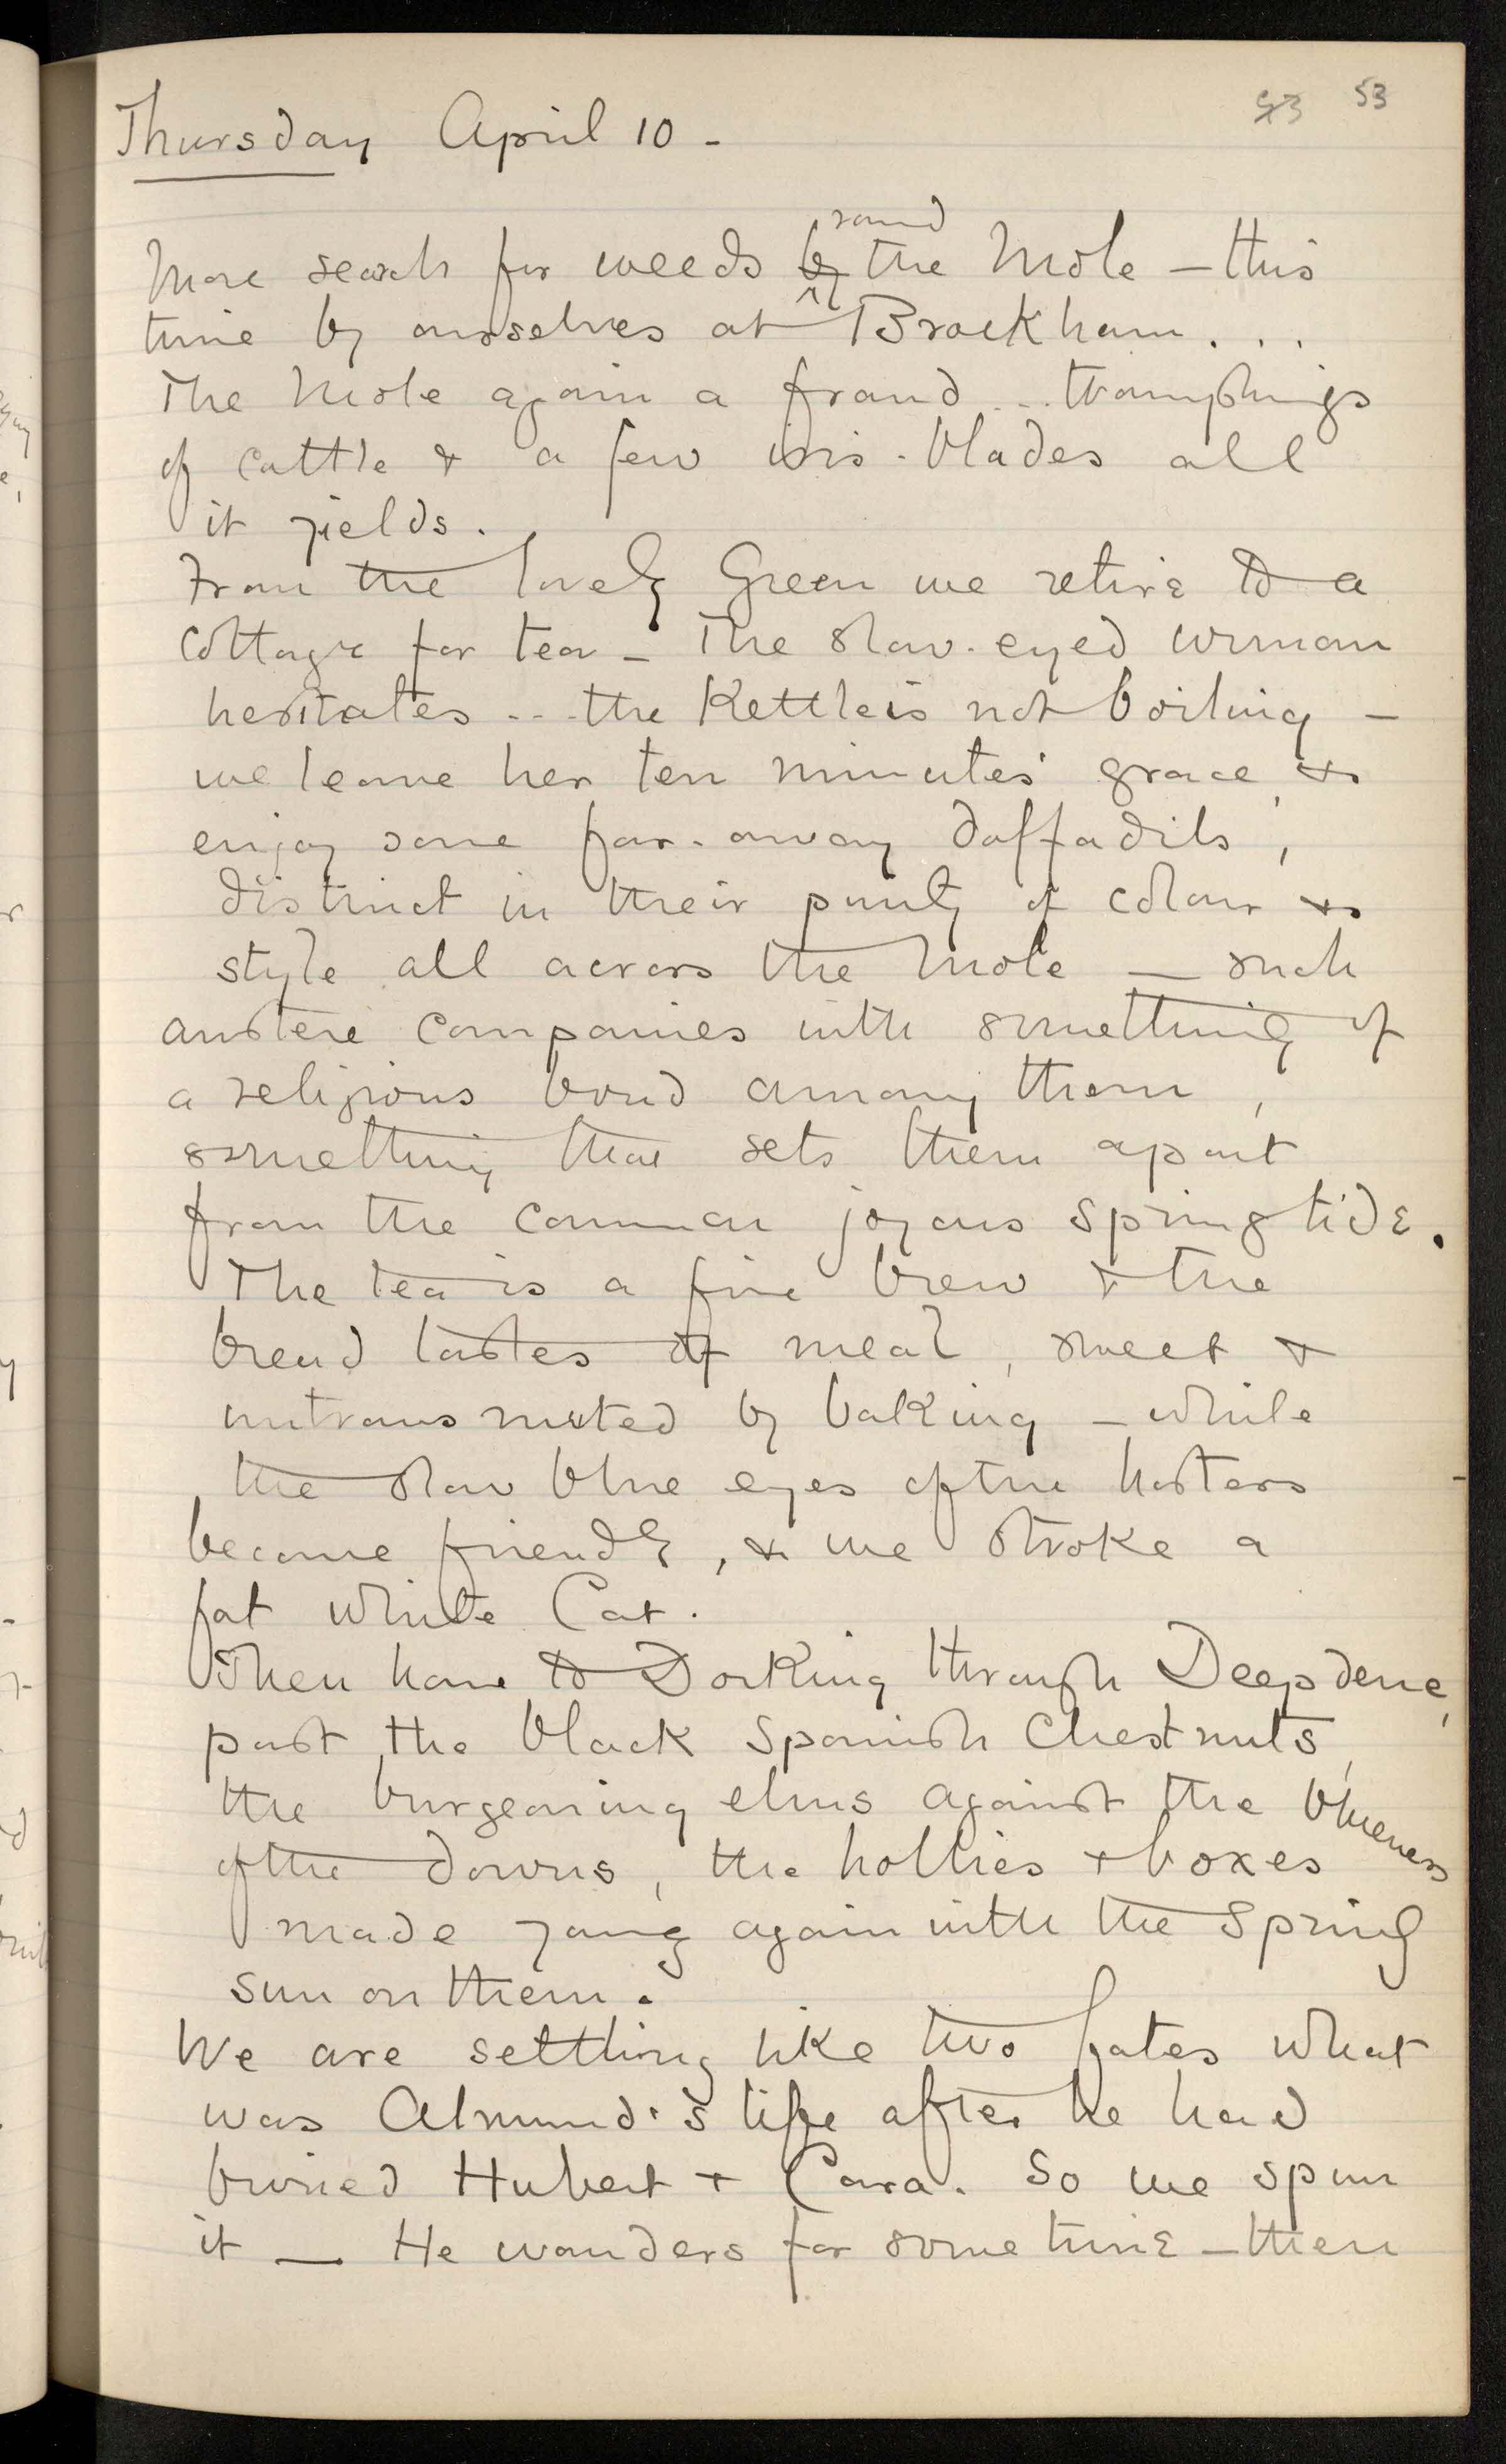 53 53
Thursday April 10 -
round
More search for weeds by the Mole - this
time by ourselves at Brockham . . .
The Mole again a fraud ... tramplings
of cattle & a few iris-blades all
it yields.
From the lovely Green we retire to a
Cottage for tea - The slow-eyed woman
hesitates ... the Kettle is not boiling -
we leave her ten minutes' grace, &
enjoy some far-away daffadils,
distinct in their purity of colour &
style all across the Mole - such
austere companies with something of
a religious bond among them,
something that sets them apart
from the common joyous springtide.
The tea is a fine brew & the
bread tastes of meal, sweet &
untransmuted by baking - while
the slow blue eyes of the hostess
become friendly, & we stroke a
fat white Cat.
Then home to Dorking through Deepdene,
past the black Spanish Chestnuts,
the burgeoning elms against the blueness
of the downs, the hollies & boxes
made young again with the Spring
sun on them.
We are settling like two fates what
was Almund's life after he had
buried Hubert & Cara. So we spun
it - He wanders for some time - then